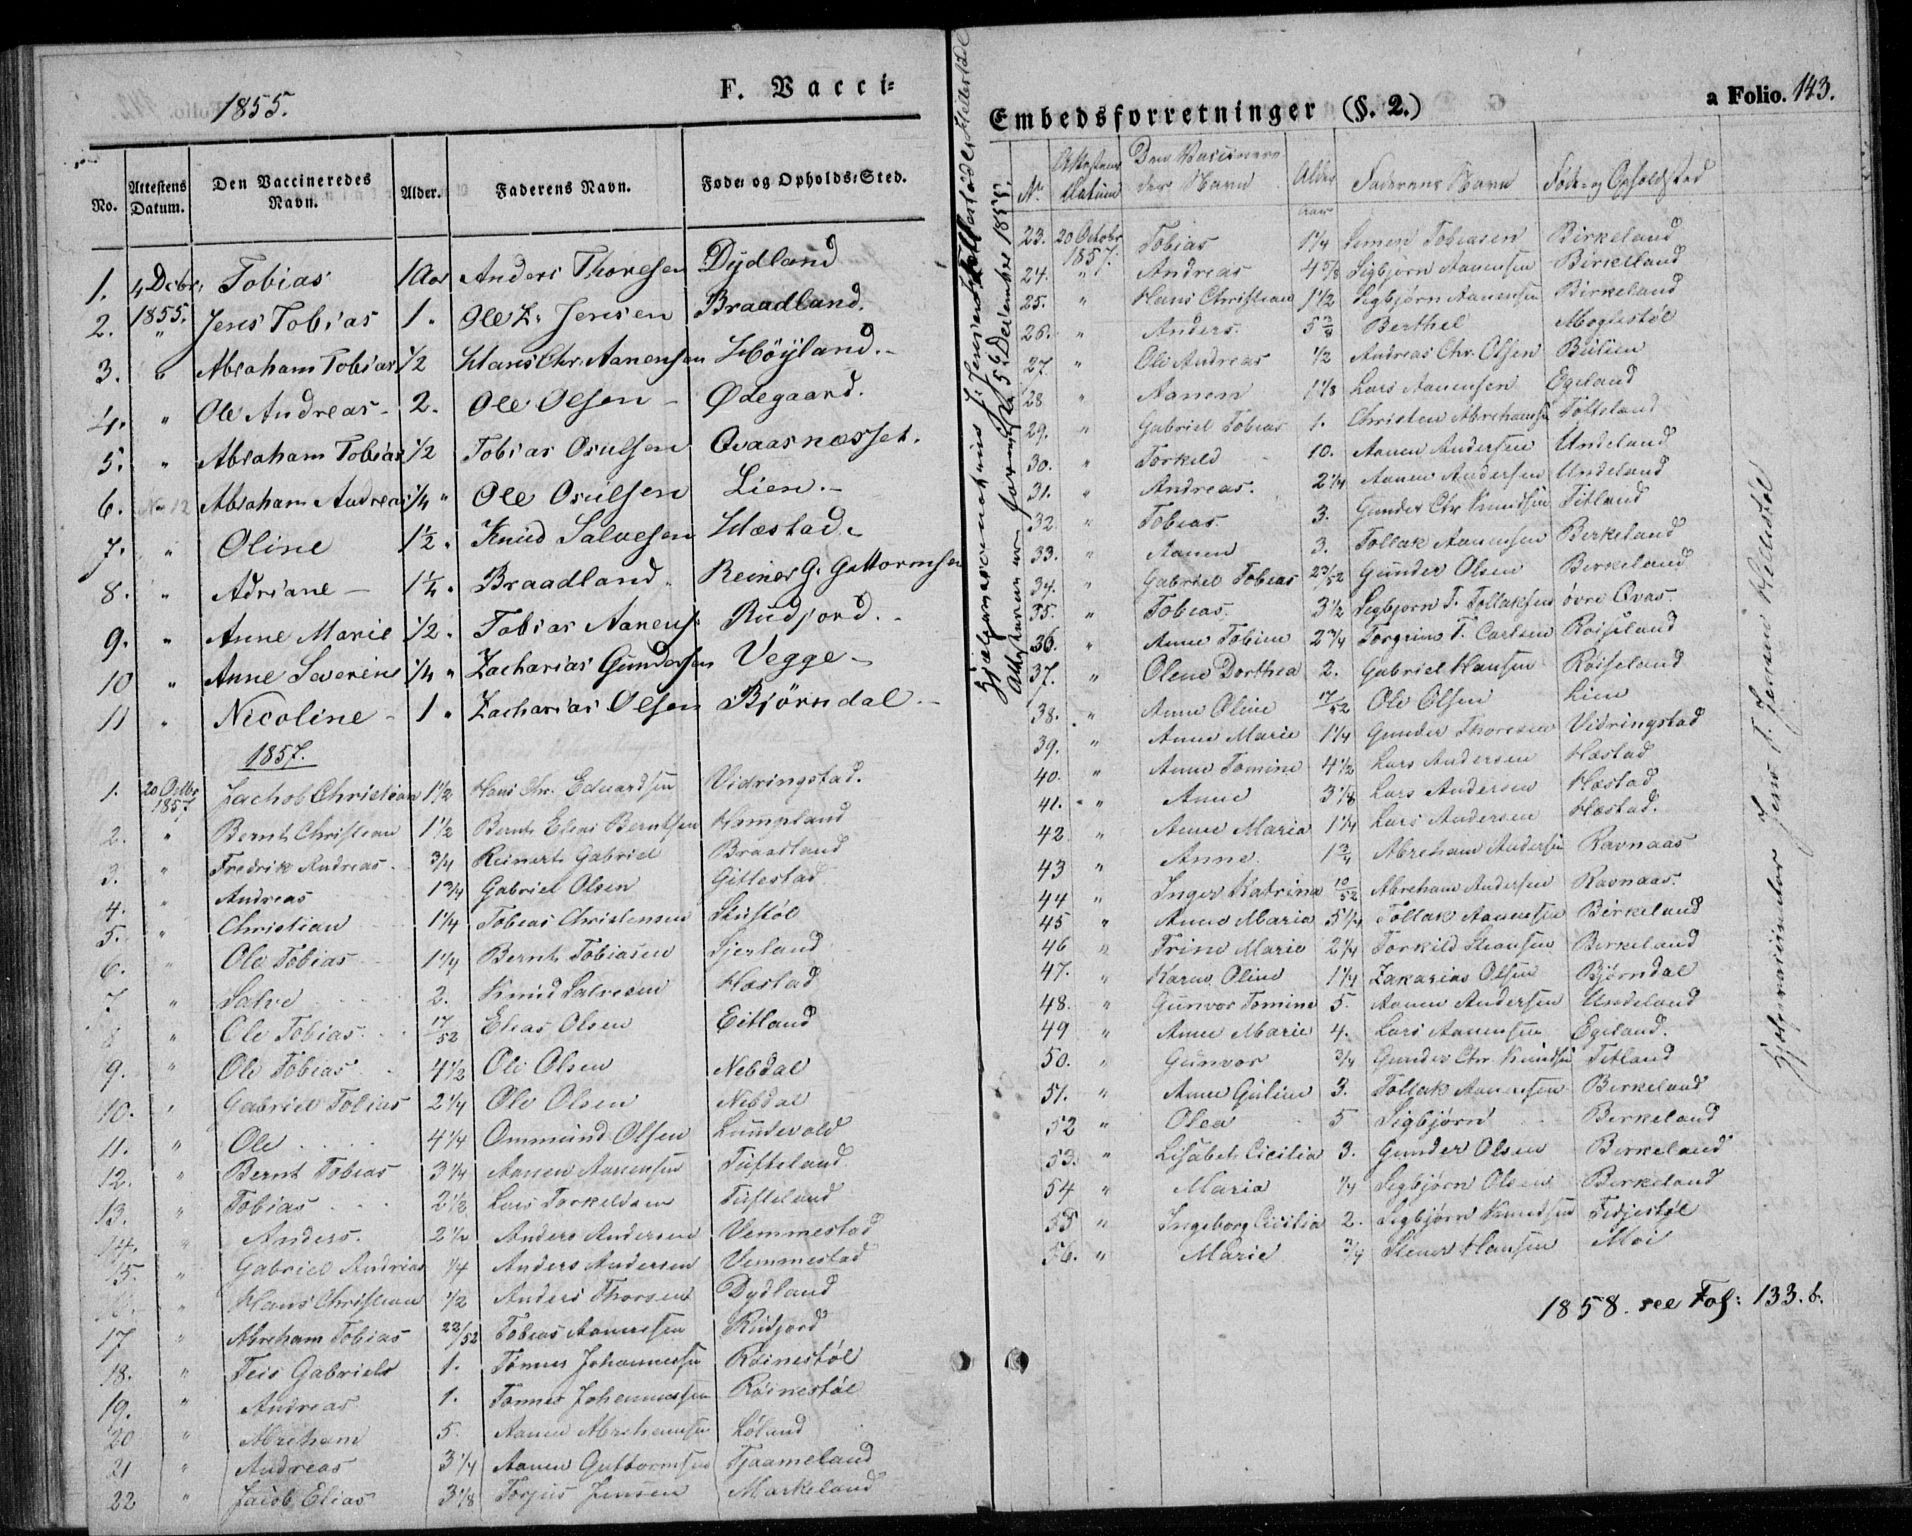 1855.
F. Vacci=
No.
Attestens Datum.
Den Vaccineredes Navn.
Alder.
Faderens Navn.
Føde= og Opholds=Sted.
1. 4 Decbr. Tobias 1 Aar Anders Thoresen Dydland
2. 1855. " Jens Tobias 1. Ole Z. Jensen Braadland.
3. " Abraham Tobias 1/2 Hans Chr. Aanensen Höyland.
4. " Ole Andreas 2. Ole Olsen Ødegaard.
5. " Abraham Tobias 1/2 Tobias Osulsen Qvaasnæsset.
6. No 12 Abraham Andreas 1/4 " Ole Osulsen Lien.
7. " Oline 1 1/2 " Knud Salvesen Hæstad.
8. " Adriane 1 1/4 " Braadland. Reiner G. Guttormsen
9. " Anne Marie 1/2 " Tobias Aanens. Rudjord.
10 " Anne Severine 1/4 " Zacharias Gundersen Vegge
11 " Nicoline 1 " Zacharias Olsen Bjørndal.
1857.
1. 20 Octbr 1857 Jachob Christian 1 1/2 Hans Chr. Eduardsen Vidringstad.
2. " Bernt Christian 1 1/2 Bernt Elias Berntsen
3. " Fredrik Andreas 3/4 Reinert Gabriel Braadland
4. " Andreas 1 3/4 Gabriel Olsen Gittestad
5. " Christian 1 1/4 Tobias Christensen
6. " Ole Tobias 1 1/4 Bernt Tobiasen
7 " Salve 2. Knud Salvesen Hæstad
8 " Ole Tobias 17/52 Elias Olsen Eitland
9. " Ole Tobias 4 1/2 Ole Olsen Nebdal
10. " Gabriel Tobias 2 1/4 Ole Olsen Nebdal
11. " Ole 4 1/4 Ommund Olsen Lundevold
12. " Bernt Tobias 3 1/4 Aanen Aanensen Tufteland
13. " Tobias 2 1/2 Lars Torkeldsen Tufteland
14. " Anders. 2 1/2 Anders Andersen Vemmestad
15. " Gabriel Andrias 1/4 Anders Andersen Vemmestad
" Hans Christian 1/2 Anders Thorsen Dydland
17 " Abreham Tobias 22/52 Tobias Aanensen Rudjord
18. " Teis Gabriel 1. Tønnes Johannessen Röinestöl
19. " Andreas 1. Tønnes Johannessen Röinestöl
20 " Abreham 5. Aanen Abrehamsen Løland
21 " Andreas 3 1/4 Aanen Guttormsen Tjaameland
22 " Jacob Elias 3 1/8 Torjus Jensen Markeland
Embedsforretninger (§. 2.)
a Folio. 143.
Nr. Attestens Datum Den Vaccineredes Navn Alder Faderens Navn Føde og Opholdsted
Aar
23. 20 Octobr 1857. Tobias 1 1/4 Simen Tobiasen Birkeland
24. " Andreas 4 5/8 Sigbjørn Aanensen Birkeland
25. " Hans Christian 1 1/2 Sigbjørn Aanensen Birkeland
26. " Anders. 5 3/4 Berthel Moglestøl
27. " Ole Andreas 1/2 Andreas Chr. Olsen
28 " Aanen 1 1/8 Lars Aanensen Egeland
29. " Gabriel Tobias 1. Christen Abrehamsen
30. " Torkild 10. Aanen Andersen Undeland
31. " Andreas. 2 1/4 Aanen Andersen Undeland
32. " Tobias. 3. Gunder Chr. Knudsen Titland
33. " Aanen 3. Tollak Aanensen Berkeland
34. " Gabriel Tobias 23/52 Gunder Olsen Berkeland
35. " Tobias. 3 1/2 Sigbjørn T. Tollaksen øvre Qvas.
36. " Anne Tobine 2 3/4 Torgrim T. Carlsen Roiseland
37. " Olene Dorthea 2. Gabriel Hansen Röiseland
38. " Anne Oline 17/52 Ole Olsen Lien
39. " Anne Marie 1 1/4 Gunder Thoresen Vidringstad
40. " Anne Tomine 4 1/2 Lars Andersen Hæstad
41. " Anne 3 1/8 Lars Andersen Hæstad
42 " Anne Maria 1 1/4 Lars Andersen Hæstad.
43 " Anne. 1 3/4 Abreham Andersen Ravnaas
44 " Inger Katrina 10/52 Abreham Andersen Ravnaas.
45 " Anne Maria 5 1/4 Tollak Aanensen Birkeland
46 " Trine Marie 2 1/4 Torkild Berkeland
47. " Karen Oline 1 1/4 Zakarias Olsen Bjørndal
48. " Gunvor Tomine 5. Aanen Andersen Undeland
49 " Anne Marie 4. Lars Aanensen Egeland.
50. " Gunvor 3/4 Gunder Chr. Knudsen Titland
51. " Anne Guline 3. Tollak Aanensen Berkeland
52 " Olea 5 Sigbjørn Berkeland
53. " Lisabet Cicilia 3. Gunder Olsen Berkeland
54 " Maria 1/4 Sigbjørn Olsen Berkeland
55 " Ingeborg Cicilia 2. Sigbjørn Knudsen Fedjestøl
56. " Marie 3/4 Stener Hansen Moi
1858. see Fol: 133. b.
Hjælpevaccinateur Jens T. Jensen Hellestøl